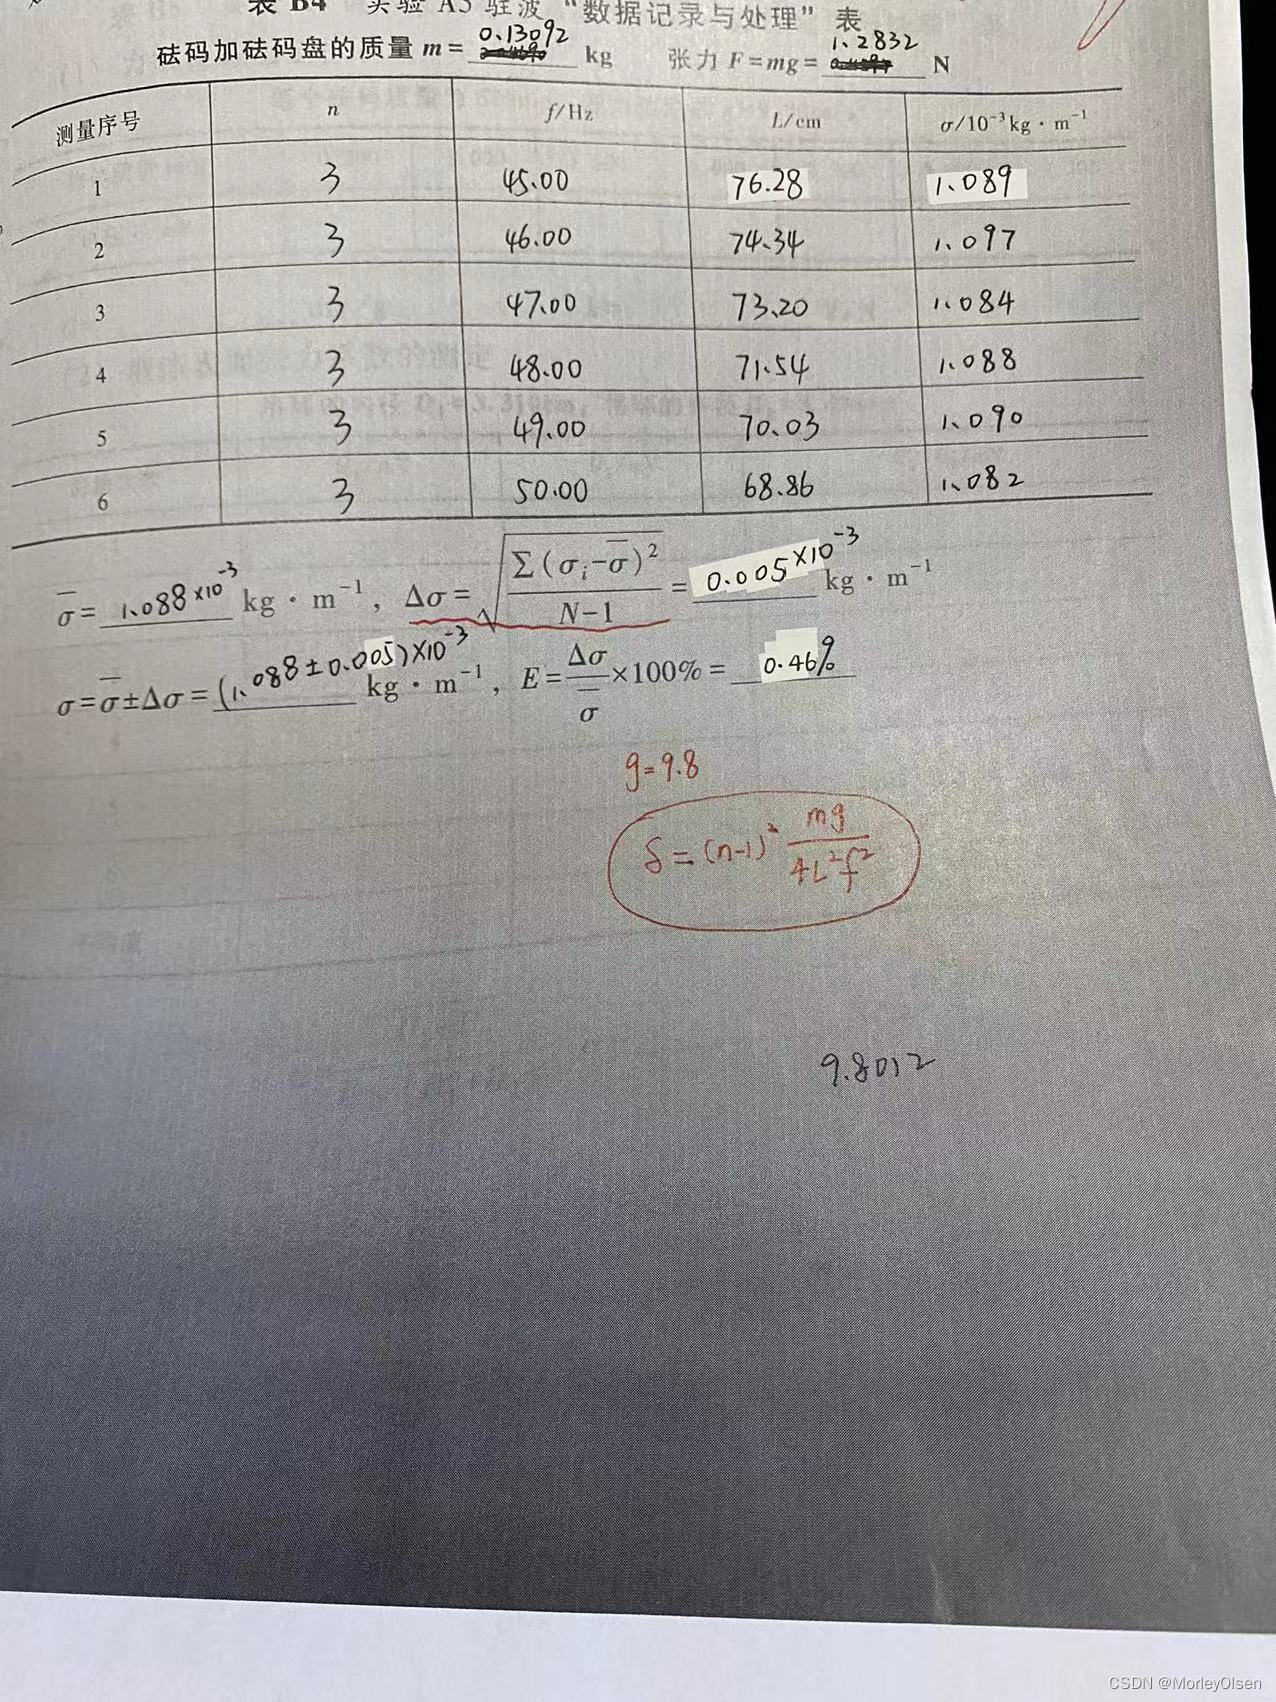 表 B4 实验 A5 驻波 “数据记录与处理” 表
砝码加砝码盘的质量 m = 0.13092 kg 张力 F=mg= 1.2832 N
测量序号 n f/Hz L/cm σ/10⁻³kg·m⁻¹
1 3 45.00 76.28 1.089
2 3 46.00 74.34 1.097
3 3 47.00 73.20 1.084
4 3 48.00 71.54 1.088
5 3 49.00 70.03 1.090
6 3 50.00 68.86 1.082
σ̄ = 1.088×10⁻³ kg·m⁻¹, Δσ = √(Σ(σᵢ-σ̄)²/(N-1)) = 0.005×10⁻³ kg·m⁻¹
σ=σ̄±Δσ = (1.088±0.005)×10⁻³ kg·m⁻¹, E=Δσ/σ̄×100% = 0.46%
g=9.8
δ=(n-1)² mg/4L²f²
9.8012
CSDN @MorleyOlsen